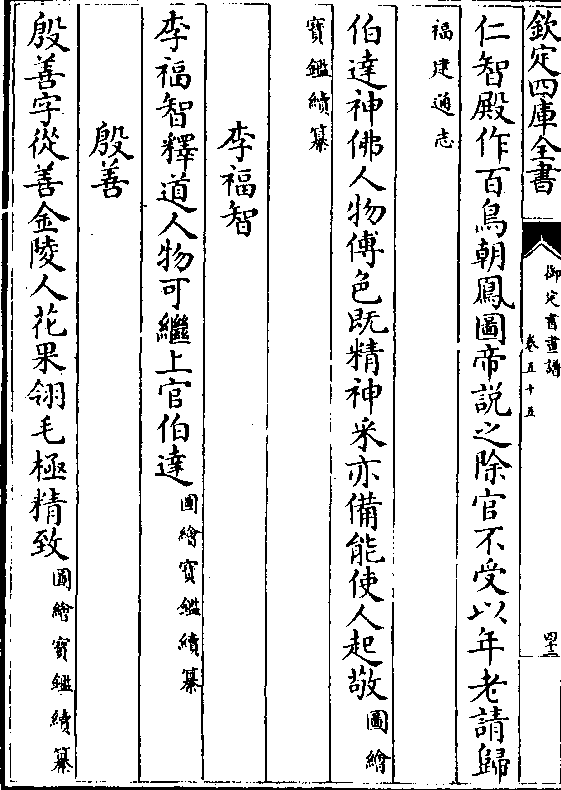 欽定四庫全書
御定書畫譜
卷五十五
四十二
仁智殿作百鳥朝鳳圖帝説之除官不受以年老請歸
福建通志
伯達神佛人物傅色既精神采亦備能使人起敬圖繪
寶鑑續纂
李福智
李福智釋道人物可繼上官伯達圖繪寶鑑續纂
殷善
殷善字從善金陵人花果翎毛極精致圖繪寶鑑續纂